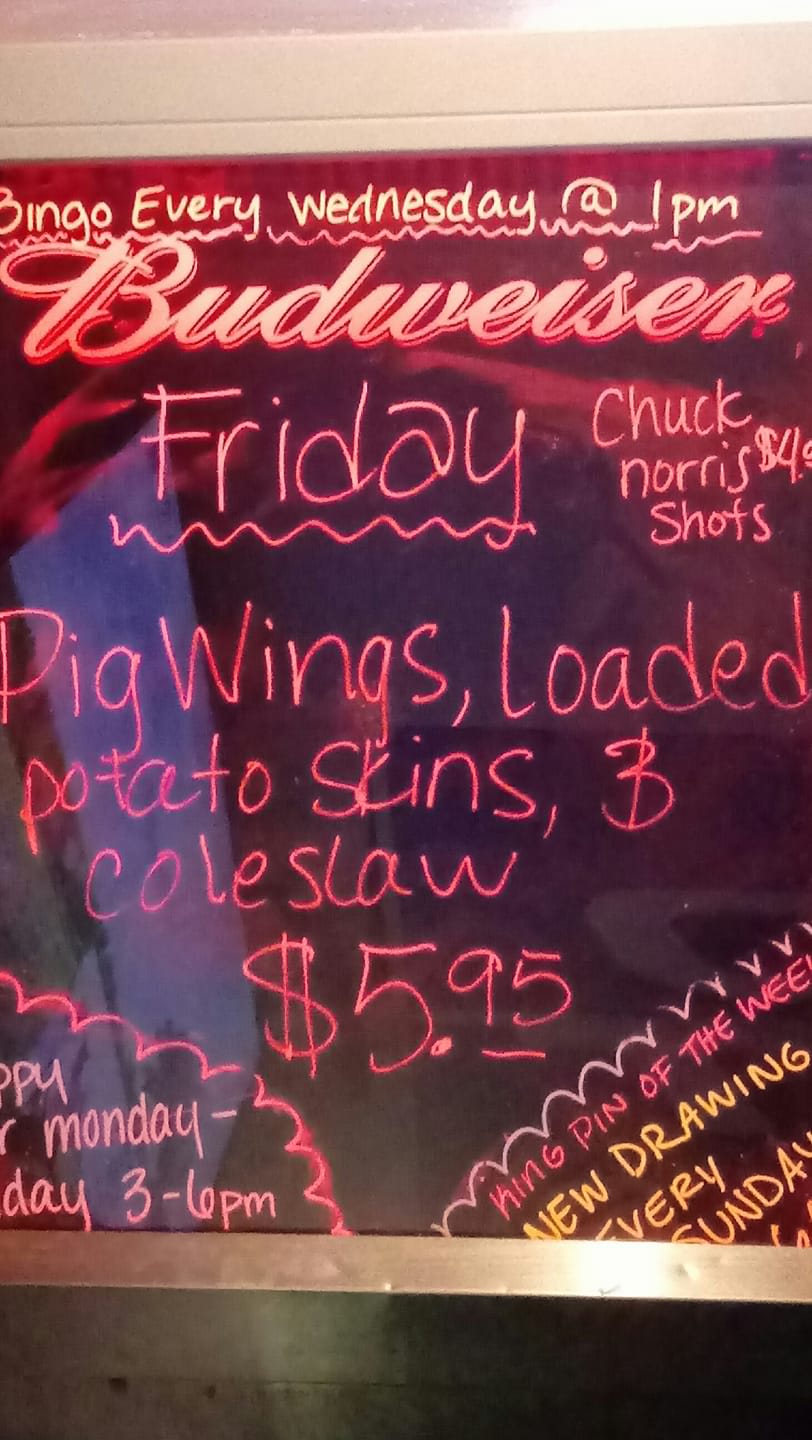 Bingo Every Wednesday @ 1pm
Budweiser
Friday
Chuck
norris
Shots
Pig Wings, Loaded
potato skins, &
coleslaw
$5.95
monday -
3-6pm
KING PIN OF THE WEEK
NEW DRAWING
EVERY
SUNDAY